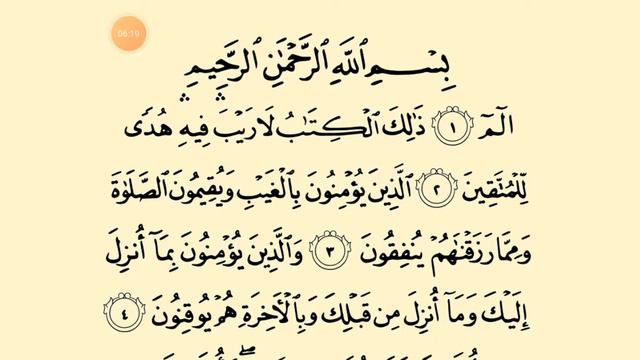 06:19
بِسْمِ ٱللَّهِ ٱلرَّحْمَٰنِ ٱلرَّحِيمِ
الٓمٓ ١ ذَٰلِكَ ٱلْكِتَٰبُ لَا رَيْبَ ۛ فِيهِ ۛ هُدًى
لِّلْمُتَّقِينَ ٢ ٱلَّذِينَ يُؤْمِنُونَ بِٱلْغَيْبِ وَيُقِيمُونَ ٱلصَّلَوٰةَ
وَمِمَّا رَزَقْنَٰهُمْ يُنفِقُونَ ٣ وَٱلَّذِينَ يُؤْمِنُونَ بِمَآ أُنزِلَ
إِلَيْكَ وَمَآ أُنزِلَ مِن قَبْلِكَ وَبِٱلْأَخِرَةِ هُمْ يُوقِنُونَ ٤